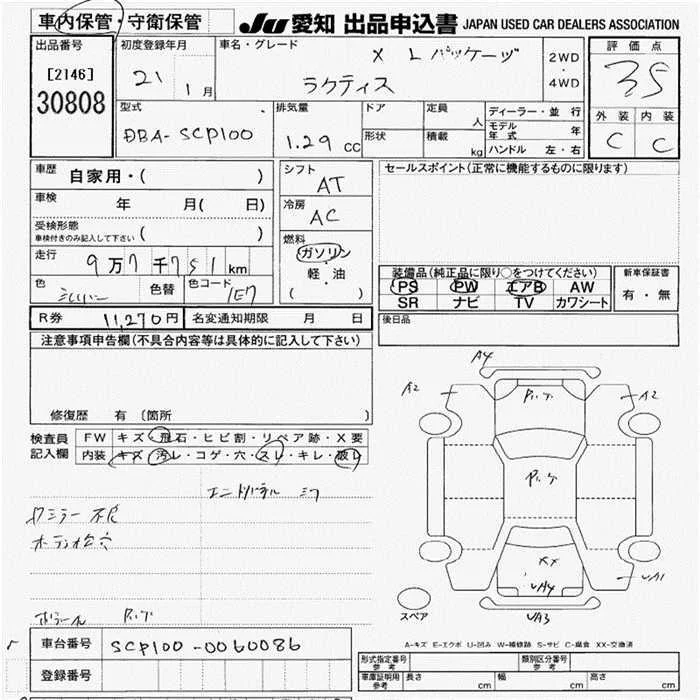 車内保管・守衛保管
JU 愛知 出品申込書 JAPAN USED CAR DEALERS ASSOCIATION
出品番号
[2146]
30808
初度登録年月
21 1月
車名・グレード
X Lパッケージ
ラクティス
2WD
・
4WD
評価点
35
外装 内装
C C
型式
DBA-SCP100
排気量
1.29 CC
ドア
形状
定員 人
積載 kg
ディーラー・並行
モデル年式 年
ハンドル 左・右
車歴
自家用・( )
車検
年 月( 日)
受検形態
車検付きのみ記入して下さい ( )
走行
9万7千751km
色
シルバー
色替
色コード
1E7
シフト
AT
冷房
AC
燃料
ガソリン
・
軽・油
( )
セールスポイント(正常に機能するものに限ります)
装備品(純正品に限り〇をつけてください)
PS PW エアB AW
SR ナビ TV カワシート
新車保証書
有・無
後日品
R券 11,270円
名変通知期限 月 日
注意事項申告欄(不具合内容等は具体的に記入して下さい)
修復歴 有 〔箇所 〕
検査員
記入欄
FW キズ・飛石・ヒビ割・リペア跡・X要
内装 キズ・汚レ・コゲ・穴・スレ・キレ・破レ
ミラー不良
A4
A2
A2
XX
UA4
UA1
UA3
スペア
A-キズ E-エクボ U-凹み W-補修跡 S-サビ C-腐食 XX-交換済
車台番号
SCP100-0060086
登録番号
形式指定番号
参考
類別区分番号
参考
車庫証明用
参考
長さ cm 幅 cm 高さ cm